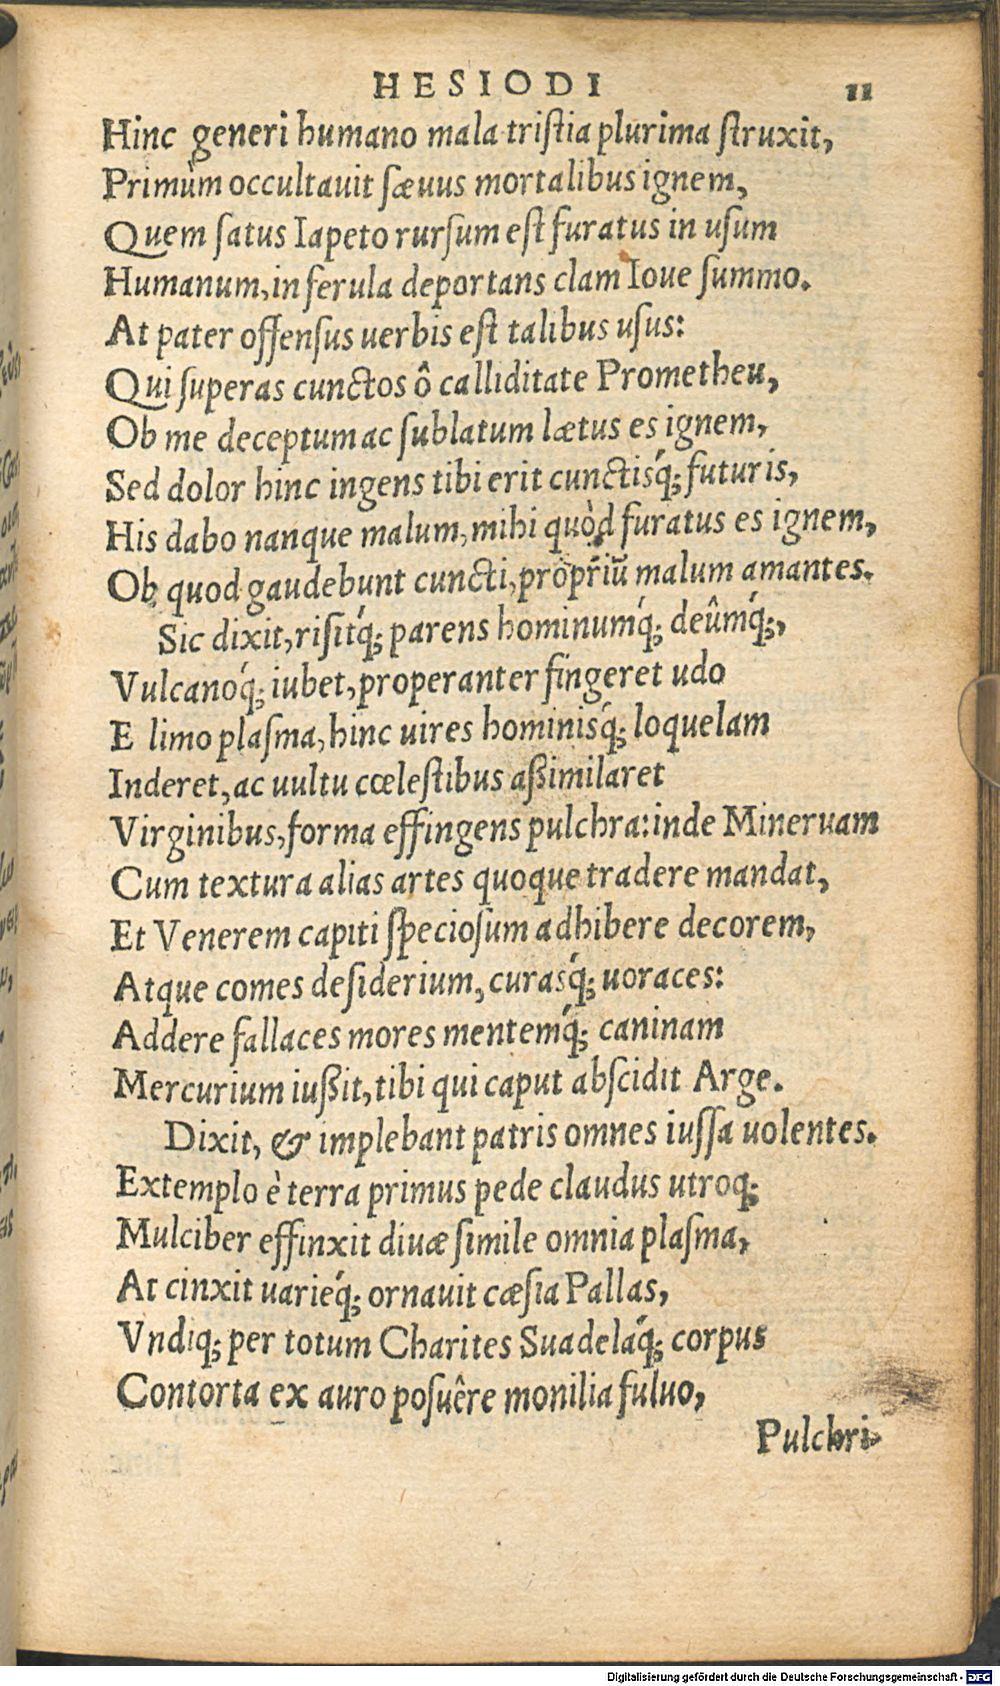 HESIODI 11
Hinc generi humano mala tristia plurima struxit,
Primùm occultauit sæuus mortalibus ignem,
Quem satus Iapeto rursum est furatus in usum
Humanum, in ferula deportans clam Ioue summo.
At pater offensus uerbis est talibus usus:
Qui superas cunctos ô calliditate Prometheu,
Ob me deceptum ac sublatum lætus es ignem,
Sed dolor hinc ingens tibi erit cunctisq́; futuris,
His dabo nanque malum, mihi quòd furatus es ignem,
Ob quod gaudebunt cuncti, propriū malum amantes.
Sic dixit, risitq́; parens hominumq́; deûmq́;,
Vulcanoq́; iubet, properanter fingeret udo
E limo plasma, hinc uires hominisq́; loquelam
Inderet, ac uultu cœlestibus aßimilaret
Virginibus, forma effingens pulchra: inde Mineruam
Cum textura alias artes quoque tradere mandat,
Et Venerem capiti speciosum adhibere decorem,
Atque comes desiderium, curasq́; uoraces:
Addere fallaces mores mentemq́; caninam
Mercurium iußit, tibi qui caput abscidit Arge.
Dixit, & implebant patris omnes iussa uolentes.
Extemplo è terra primus pede claudus utroq;
Mulciber effinxit diuæ simile omnia plasma,
At cinxit uarieq́; ornauit cæsia Pallas,
Vndiq; per totum Charites Suadelaq́; corpus
Contorta ex auro posuêre monilia fuluo,
Pulchri-
Digitalisierung gefördert durch die Deutsche Forschungsgemeinschaft - DFG